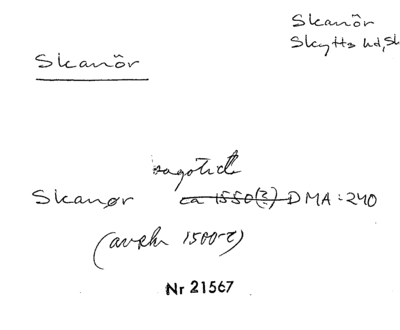 Skanör
Skytts hd, Sk
Skanör
sagotid
Skanør ca 1550(?) DMA: 240
(avskr 1500-t)
Nr 21567